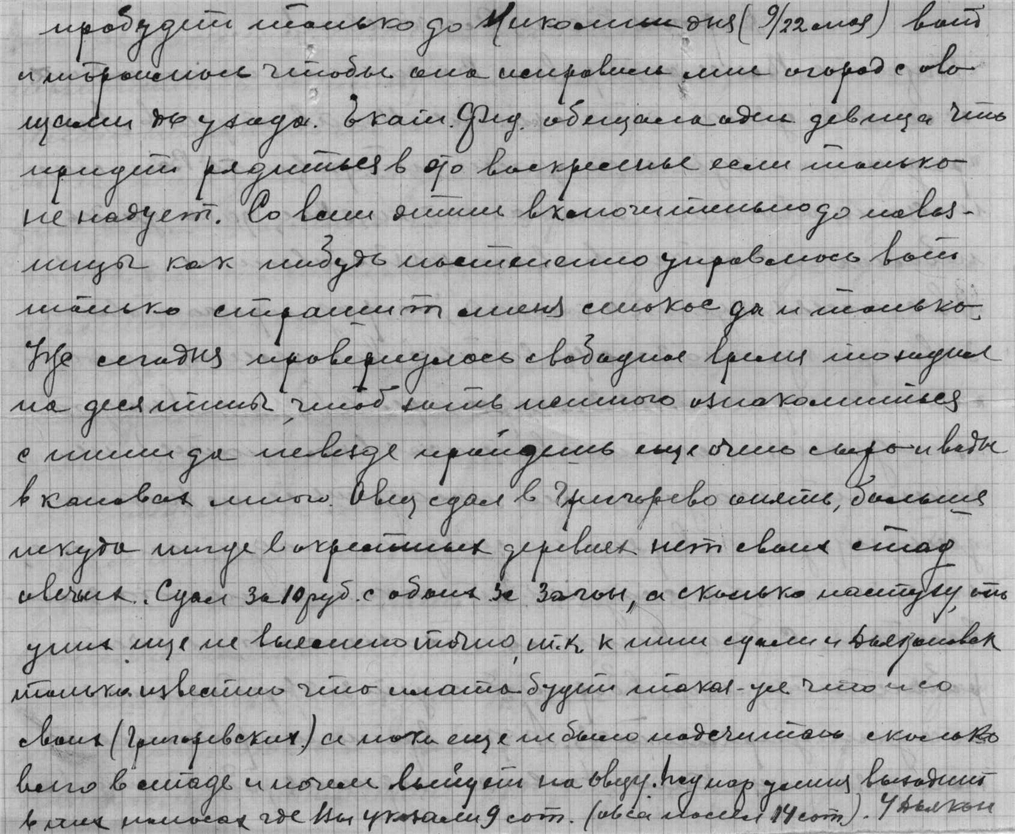 пробудет только до Николина дня (9/22 мая) вот
и тороплюсь чтобы она исправила мне огород с ово-
щами до ухода. Екат. Фед. обещала одна девица что
придет рядиться в это воскресенье если только
не надует. Со всем этим включительно до
как нибудь постепенно управлюсь вот
только страшит меня сенокос да и только.
Уже сегодня провернулось свободное время то ходил
на десятины чтоб хоть немного ознакомиться
с ними да не везде пройдешь еще очень сыро и воды
в канавах много. Овец сдал в Григорево опять, больше
некуда нигде в окрестных деревнях нет своих стад
овечьих. Сдал за 10 руб. с обоих за, а сколько пастуху от
еще не выяснено точно, т.к. к ним сдали и
только известно что плата будет такая-же что и со
своих (Григоревских) а пока еще не было подсчитано сколько
всего в стаде и почем выйдет на овцу. выходит
в них полосах где Вы указали 9 сот. (овса посеял 14 сот.). У